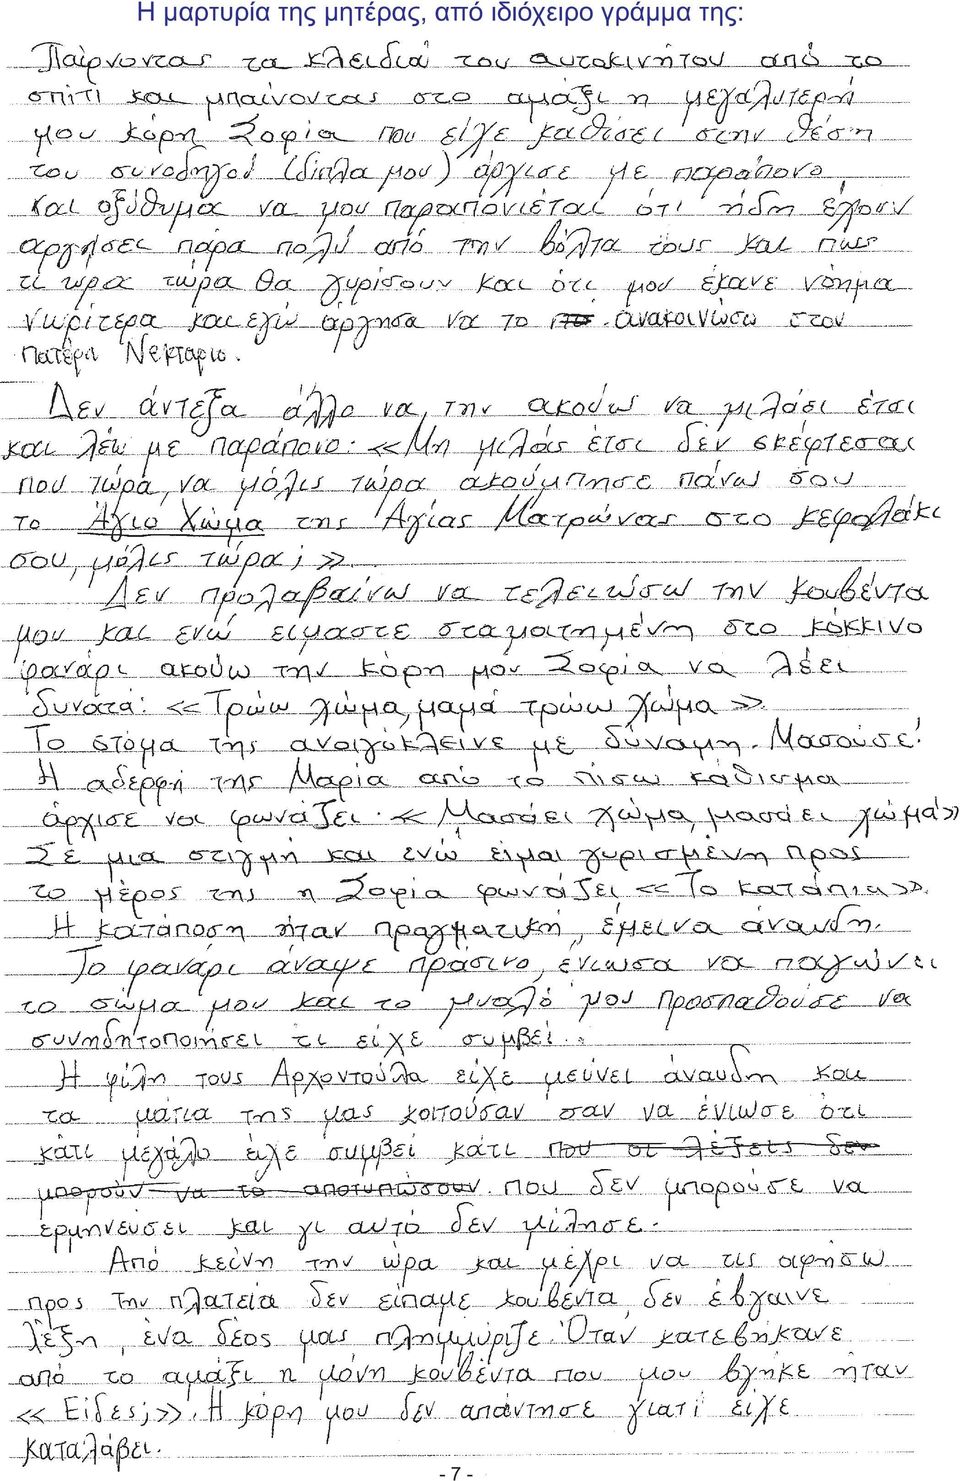 Η μαρτυρία της μητέρας, από ιδιόχειρο γράμμα της:
Παίρνοντας τα κλειδιά του αυτοκινήτου από το
σπίτι και μπαίνοντας στο αμάξι η μεγαλυτερή
μου κόρη Σοφία που είχε καθίσει στην θέση
του συνοδηγού (δίπλα μου) άρχισε με παράπονο,
και οξύθυμα να μου παραπονιέται ότι ήδη έχουν
αργήσει πάρα πολύ από την βόλτα τους και πως
τι ώρα τώρα θα γυρίσουν και ότι μου έκανε νόημα
νωρίτερα και εγώ άργησα να το ανακοινώσω στον
πατέρα Νεκταριο.
Δεν άντεξα άλλο να, την ακούω να μιλάει έτσι
και λέω με παράπονο: «Μη μιλάς έτσι δεν σκέφτεσαι
που τώρα, να μόλις τώρα ακούμπησε πάνω σου
το Άγιο Χώμα της Άγίας Ματρώνας στο κεφαλάκι
σου, μόλις τώρα;».
Δεν προλαβαίνω να τελειώσω την κουβέντα
μου και ενώ είμαστε σταματημένη στο κόκκινο
φανάρι ακούω την κόρη μου Σοφία να λέει
δυνατά: «Τρώω χώμα, μαμά τρώω χώμα».
Το στόμα της ανοιγόκλεινε με δύναμη. Μασούσε!
Η αδερφή της Μαρία από το πίσω κάθισμα
άρχισε να φωνάζει: «Μασάει χώμα, μασάει χώμα»
Σε μια στιγμή και ενώ είμαι γυρισμένη προς
το μέρος της η Σοφία φωνάζει «Το κατάπια».
Η κατάποση ήταν πραγματική, έμεινα άναυδη.
Το φανάρι άναψε πράσινο, ένιωσα να παγώνει
το σώμα μου και το μυαλό μου προσπαθούσε να
συνηδητοποιήσει τι είχε συμβεί.
Η φίλη τους Αρχοντούλα είχε μεύνει άναυδη και
τα μάτια της μας κοιτούσαν σαν να ένιωσε ότι
κάτι μεγάλο είχε συμβεί κάτι που οι λέξεις δεν
μπορούν να το αποτυπώσουν. που δεν μπορούσε να
ερμηνεύσει και γι αυτό δεν μίλησε.
Από κείνη την ώρα και μέχρι να τις αφήσω
προς την πλατεία δεν είπαμε κουβέντα, δεν έβγαινε
λέξη, ένα δέος μας πλημμύριζε. Όταν κατεβήκανε
από το αμάξι η μόνη κουβέντα που μου βγήκε ήταν
«Είδες;». Η κόρη μου δεν απάντησε γιατί είχε
καταλάβει.
- 7 -